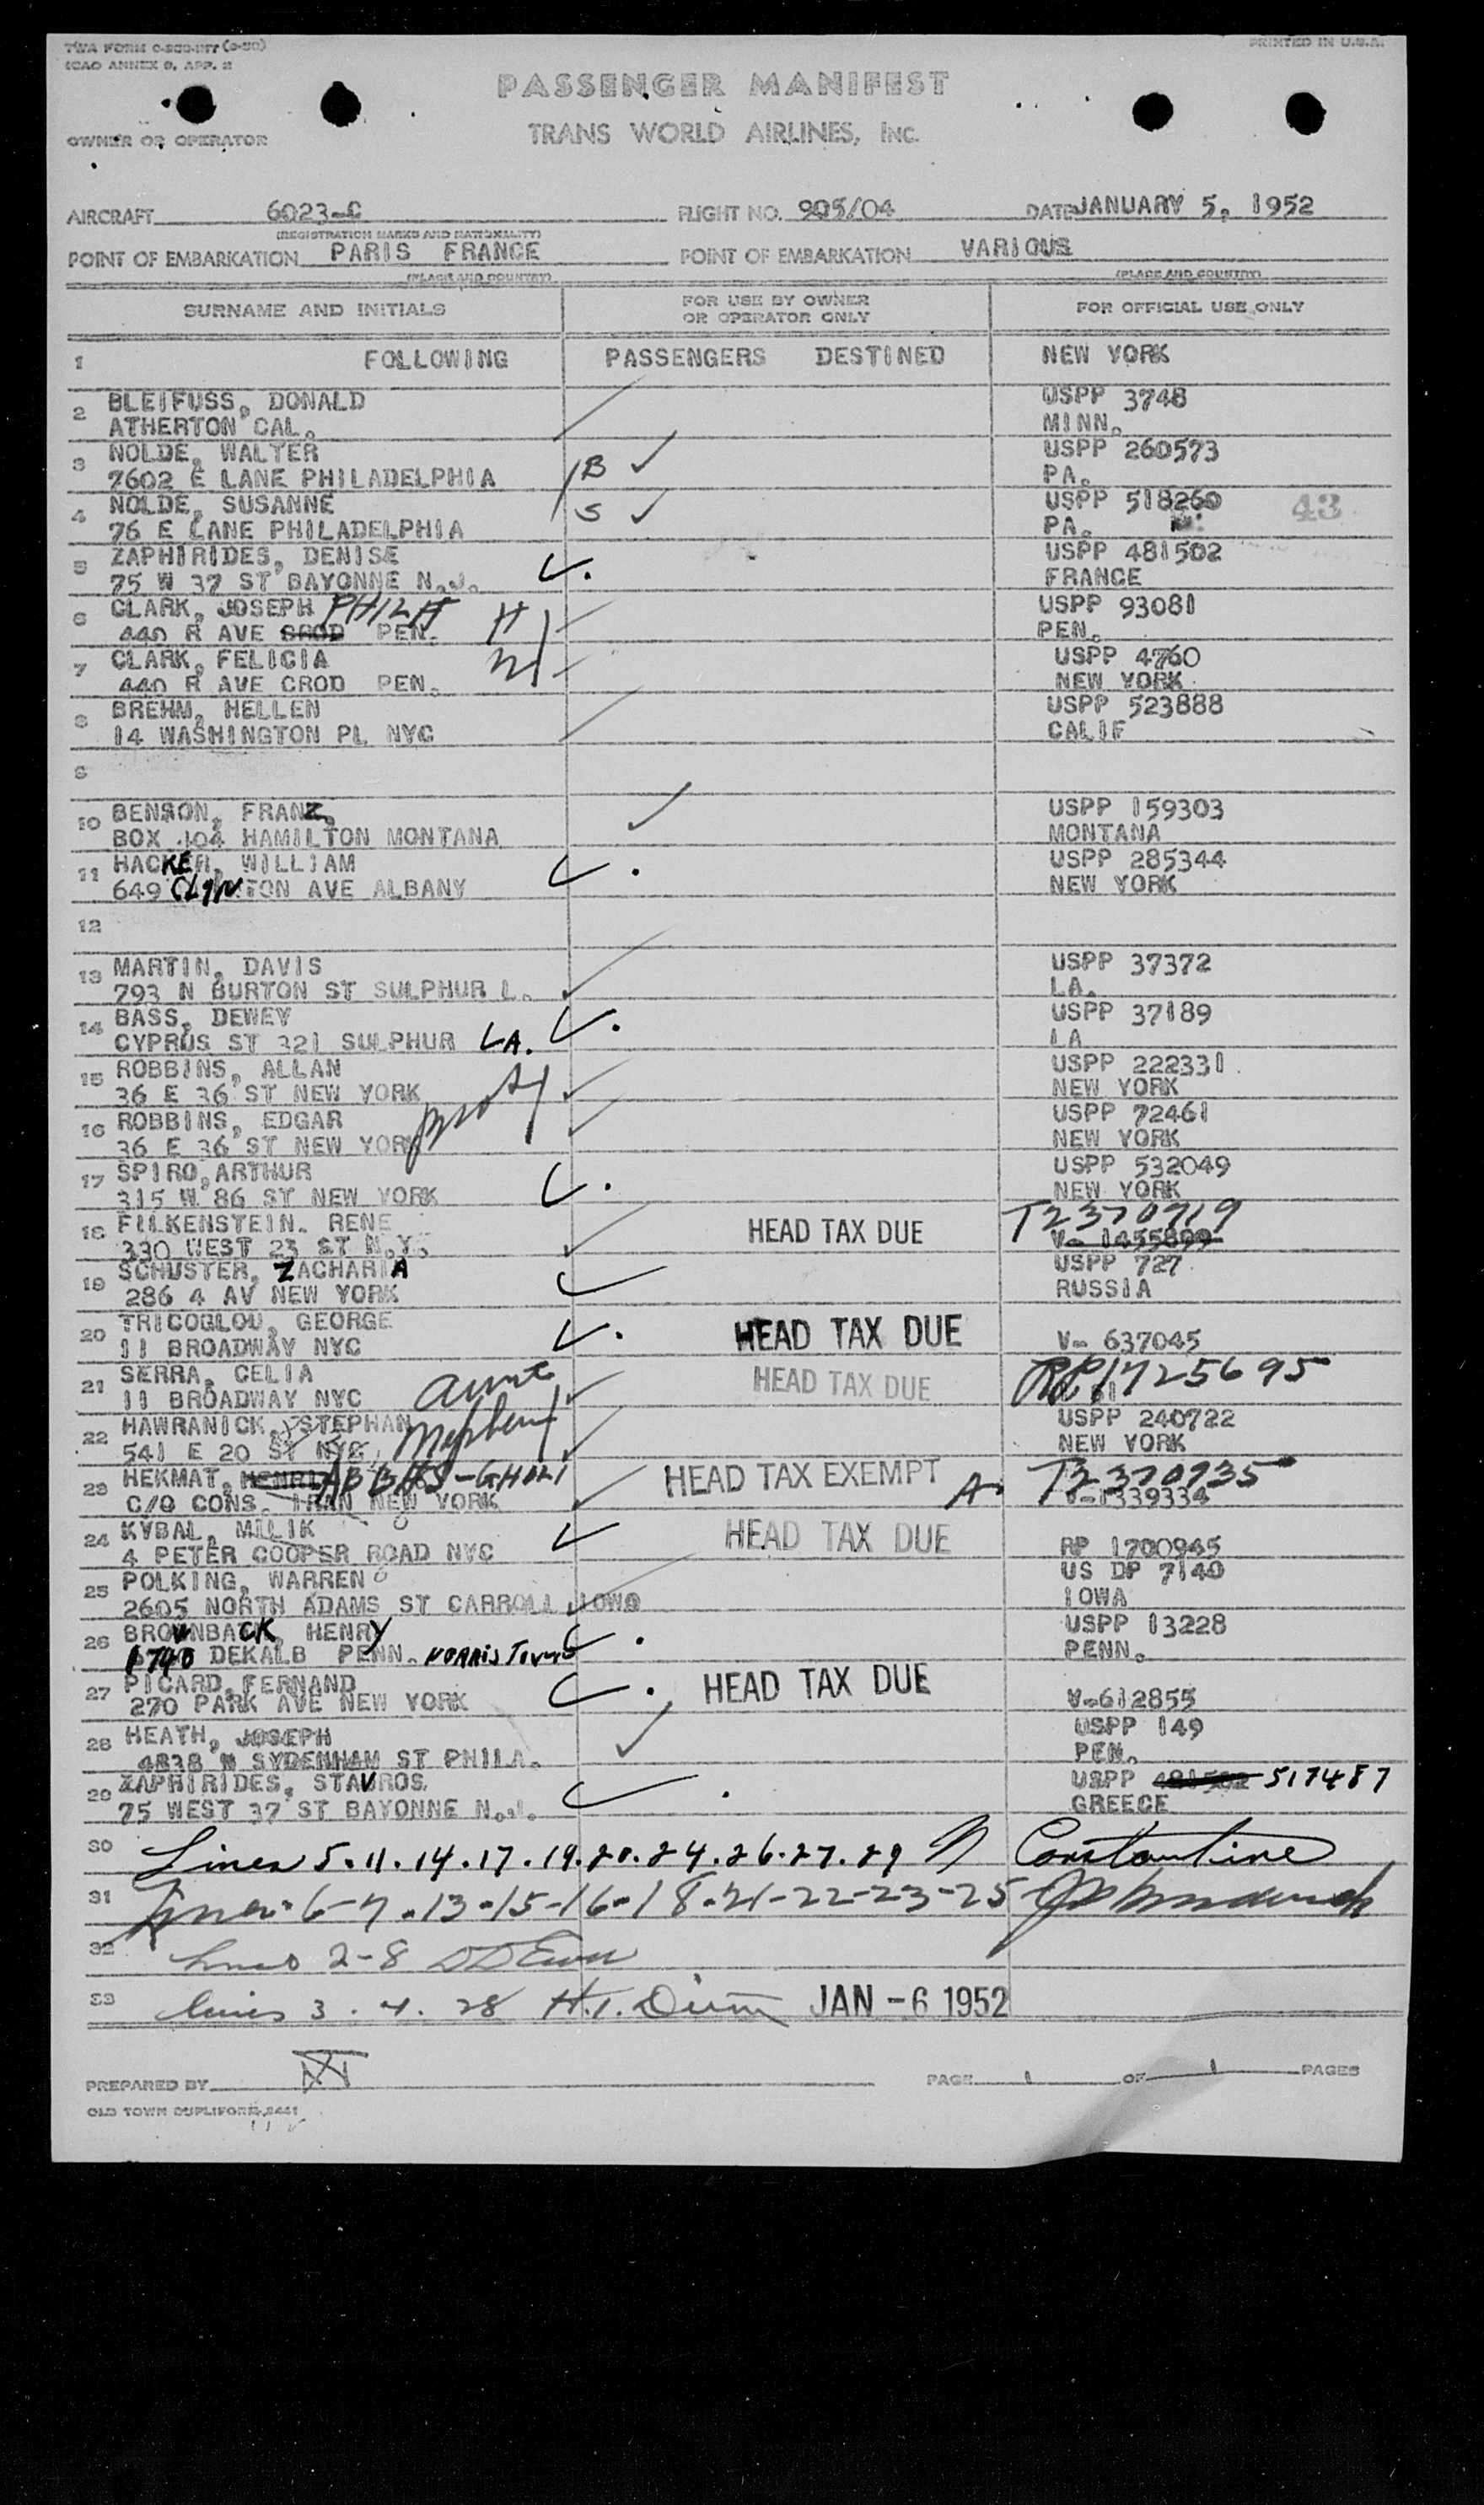 TWA FORM
ICAO ANNEX 9, APP. 2
PRINTED IN U.S.A.
PASSENGER MANIFEST
TRANS WORLD AIRLINES, INC.
OWNER OR OPERATOR
AIRCRAFT 6023-C FLIGHT NO. 905/04 DATE JANUARY 5, 1952
(REGISTRATION MARKS AND NATIONALITY)
POINT OF EMBARKATION PARIS FRANCE POINT OF EMBARKATION VARIOUS
(PLACE AND COUNTRY) (PLACE AND COUNTRY)
SURNAME AND INITIALS FOR USE BY OWNER OR OPERATOR ONLY FOR OFFICIAL USE ONLY
1 FOLLOWING PASSENGERS DESTINED NEW YORK
2 BLEIFUSS, DONALD USPP 3748
ATHERTON CAL. MINN.
3 NOLDE, WALTER B USPP 260573
7602 E LANE PHILADELPHIA PA.
4 NOLDE, SUSANNE S USPP 518260 43
76 E LANE PHILADELPHIA PA.
5 ZAPHIRIDES, DENISE USPP 481502
75 W 37 ST BAYONNE N.J. FRANCE
6 CLARK, JOSEPH PHILA H USPP 93081
440 R AVE CROD PEN. PEN.
7 CLARK, FELICIA W USPP 4760
440 R AVE CROD PEN. NEW YORK
8 BREHM, HELLEN USPP 523888
14 WASHINGTON PL NYC CALIF
9
10 BENSON, FRANZ, USPP 159303
BOX 104 HAMILTON MONTANA MONTANA
11 HACKER, WILLIAM USPP 285344
649 CLINTON AVE ALBANY NEW YORK
12
13 MARTIN, DAVIS USPP 37372
793 N BURTON ST SULPHUR L. LA.
14 BASS, DEWEY USPP 37189
CYPRUS ST 321 SULPHUR LA. LA
15 ROBBINS, ALLAN USPP 222331
36 E 36 ST NEW YORK NEW YORK
16 ROBBINS, EDGAR USPP 72461
36 E 36 ST NEW YORK NEW YORK
17 SPIRO, ARTHUR USPP 532049
315 W 86 ST NEW YORK NEW YORK
18 FILKENSTEIN. RENE HEAD TAX DUE T2370719
330 WEST 23 ST N.Y. V- 1455899
19 SCHUSTER, ZACHARIA USPP 727
286 4 AV NEW YORK RUSSIA
20 TRICOGLOU, GEORGE HEAD TAX DUE
11 BROADWAY NYC V- 637045
21 SERRA, CELIA aunt HEAD TAX DUE RP1725695
11 BROADWAY NYC
22 HAWRANICK, STEPHAN nephew USPP 240722
541 E 20 ST NYC NEW YORK
23 HEKMAT, HENRI ABBAS-GHOLI HEAD TAX EXEMPT A. T2370735
C/O CONS. IRAN NEW YORK V-1339334
24 KYBAL, MILIK HEAD TAX DUE
4 PETER COOPER ROAD NYC RP 1700945
25 POLKING, WARREN US DP 7140
2605 NORTH ADAMS ST CARROLL IOWA IOWA
26 BROWNBACK, HENRY USPP 13228
1740 DEKALB PENN. NORRISTOWN PENN.
27 PICARD, FERNAND HEAD TAX DUE
270 PARK AVE NEW YORK V-612855
28 HEATH, JOSEPH USPP 149
4838 N SYDENHAM ST PHILA. PEN.
29 ZAPHIRIDES, STAVROS USPP 481502 517487
75 WEST 37 ST BAYONNE N.J. GREECE
30 Lines 5.11.14.17.19.20.24.26.27.29 N Constantine
31 Lines 6-7-13-15-16-18-21-22-23-25
32 Lines 2-8
33 Lines 3.4.28 H.T. JAN -6 1952
PREPARED BY PAGE 1 OF 1 PAGES
OLD TOWN DUPLIFORM